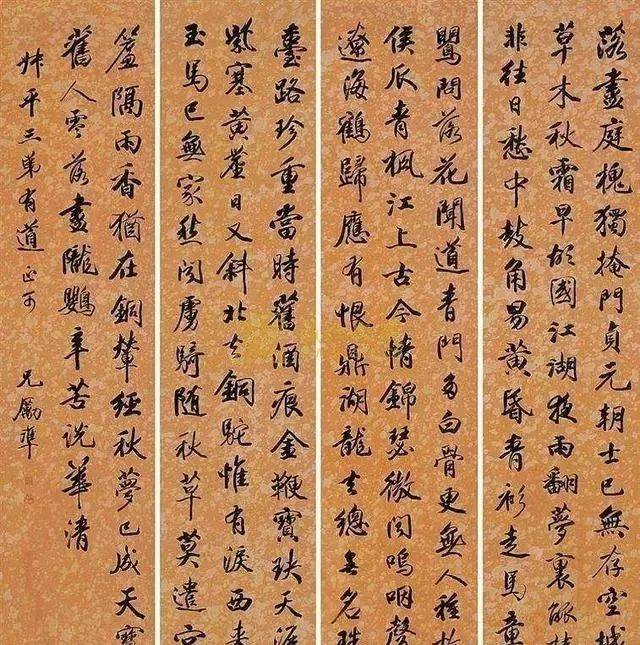 落盡庭槐獨掩門貞元朝士已無存空城
草木秋霜早故國江湖夜雨翻夢裏觚稜
非往日愁中鼓角易黃昏青衫走馬童
鸎閒落花聞道青門多白骨更無人種故
侯瓜青楓江上古今情錦瑟微聞嗚咽聲
遼海鶴歸應有恨鼎湖龍去總無名珠
臺路珍重當時舊酒痕金鞭寶玦天涯
紫塞黃董日又斜北去銅駝惟有淚西来
玉馬已無家愁聞虜騎随秋草莫遣宫
簾隅雨香猶在銅輦經秋夢已成天寶
舊人零落盡隴鸚辛苦說華清
叔平三弟有道正可
兄勵準